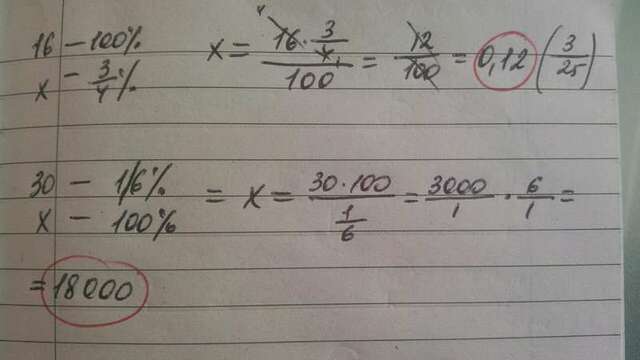 16 – 100%
x – 3/4 % x = (16 · 3/4) / 100 = 12/100 = 0,12 (3/25)
30 – 1/6 %
x – 100% = x = (30 · 100) / (1/6) = 3000/1 · 6/1 =
= 18000